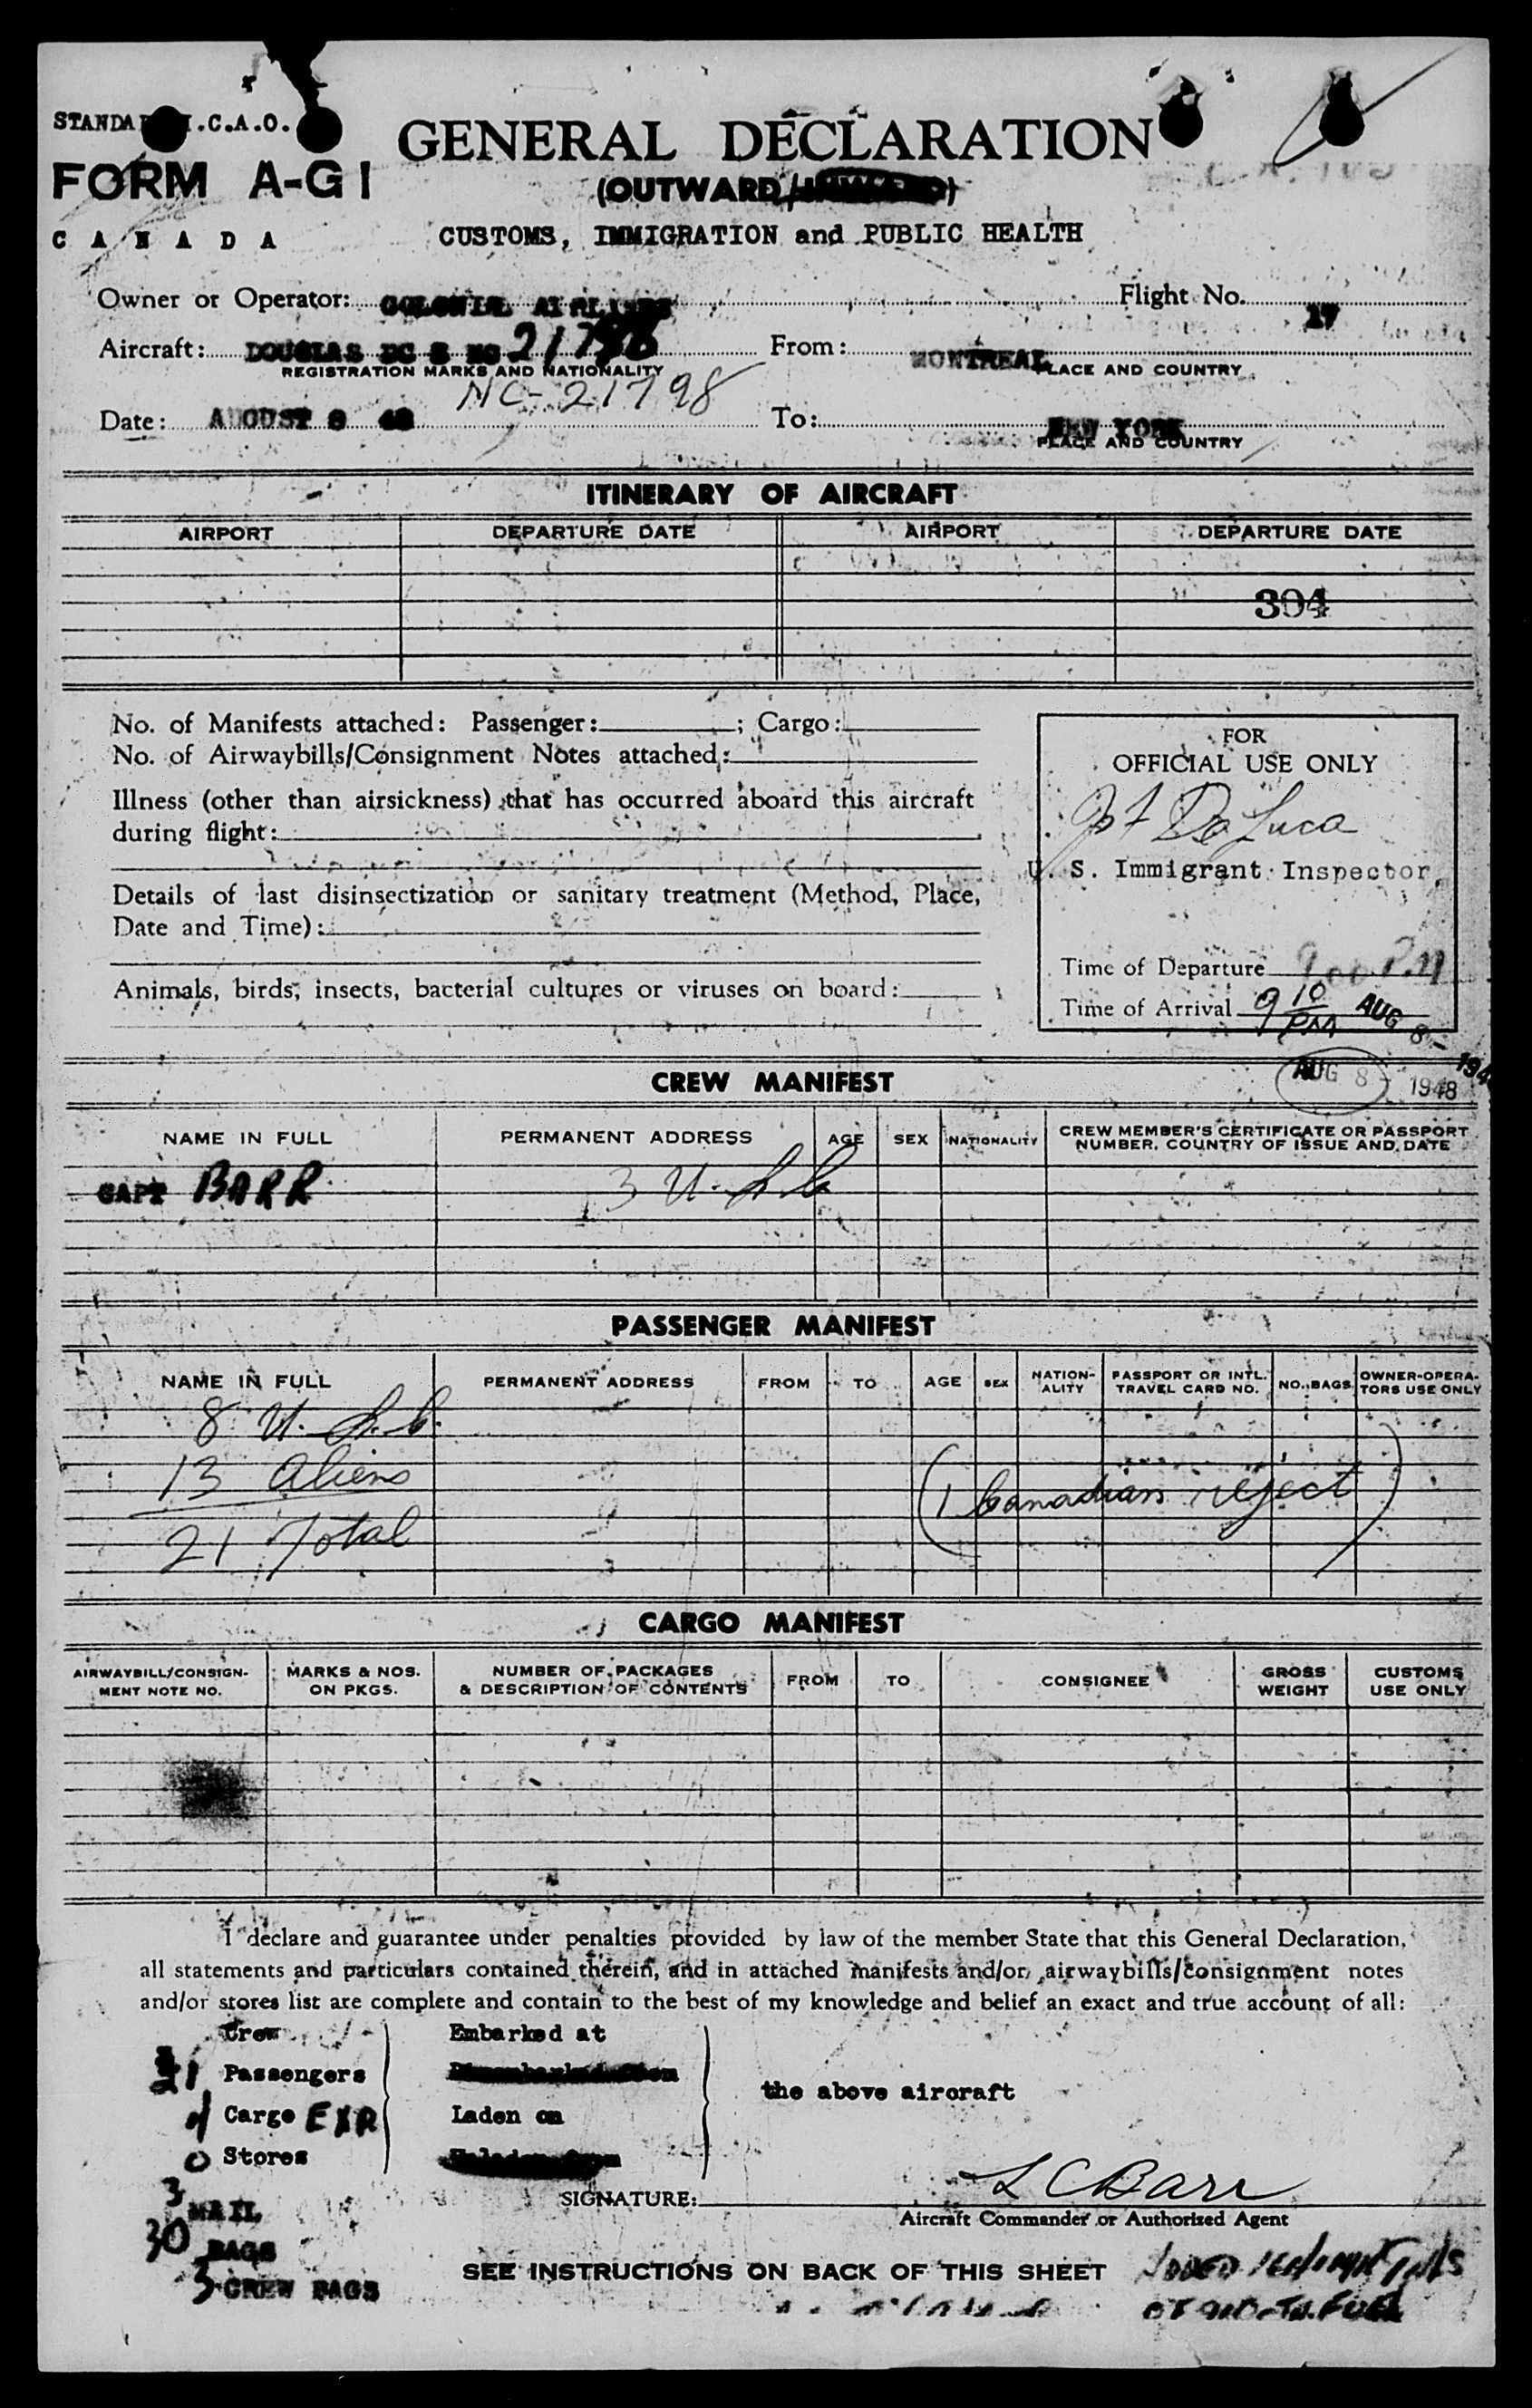 STANDARD I.C.A.O.
FORM A-G1
CANADA
GENERAL DECLARATION
(OUTWARD/
CUSTOMS, IMMIGRATION and PUBLIC HEALTH
Owner or Operator: COLONIAL AIRLINES Flight No. 17
Aircraft: DOUGLAS DC 3 NC 21798 From: MONTREAL
REGISTRATION MARKS AND NATIONALITY PLACE AND COUNTRY
NC-21798
Date: AUGUST 8 48 To: NEW YORK
PLACE AND COUNTRY
ITINERARY OF AIRCRAFT
AIRPORT DEPARTURE DATE AIRPORT DEPARTURE DATE
304
No. of Manifests attached: Passenger: ; Cargo:
No. of Airwaybills/Consignment Notes attached:
Illness (other than airsickness) that has occurred aboard this aircraft
during flight:
Details of last disinsectization or sanitary treatment (Method, Place,
Date and Time):
Animals, birds, insects, bacterial cultures or viruses on board:
FOR
OFFICIAL USE ONLY
De Luca
U. S. Immigrant Inspector
Time of Departure 900 P.M
Time of Arrival 9 10 PM AUG 8 - 194
AUG 8 1948
CREW MANIFEST
NAME IN FULL PERMANENT ADDRESS AGE SEX NATIONALITY CREW MEMBER'S CERTIFICATE OR PASSPORT
NUMBER, COUNTRY OF ISSUE AND DATE
CAPT BARR 3 U.S.C.
PASSENGER MANIFEST
NAME IN FULL PERMANENT ADDRESS FROM TO AGE SEX NATION-ALITY PASSPORT OR INTL. TRAVEL CARD NO. NO. BAGS OWNER-OPERA-TORS USE ONLY
8 U.S.C.
13 aliens
(1 Canadian reject)
21 Total
CARGO MANIFEST
AIRWAYBILL/CONSIGN-MENT NOTE NO. MARKS & NOS. ON PKGS. NUMBER OF PACKAGES & DESCRIPTION OF CONTENTS FROM TO CONSIGNEE GROSS WEIGHT CUSTOMS USE ONLY
I declare and guarantee under penalties provided by law of the member State that this General Declaration,
all statements and particulars contained therein, and in attached manifests and/or airwaybills/consignment notes
and/or stores list are complete and contain to the best of my knowledge and belief an exact and true account of all:
Crew Embarked at
21 Passengers
the above aircraft
Cargo EXR Laden on
0 Stores
SIGNATURE: L C Barr
Aircraft Commander or Authorized Agent
3 MAIL
30 BAGS
3 CREW BAGS
SEE INSTRUCTIONS ON BACK OF THIS SHEET